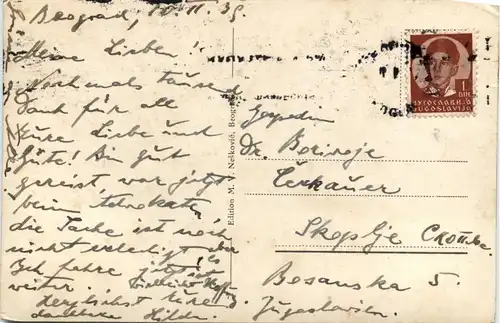 Beograd, 10. II. 39.
Meine Lieben!
Nochmals tausend
Dank für all
Eure Liebe und
Güte! Bin gut
gereist war jetzt
beim
die Sache ist noch
nicht erledigt aber
Ich fahre jetzt
weiter.
Herzlichst Eure
dankbare Hilde.
Edition M. V. Nešković, Beograd
1
DIN
ЈУГОСЛАВИЈА
JUGOSLAVIJA
Gospodin
Dr. Borivoje
Skoplje Скопље
Bosanska 5.
Jugoslavien